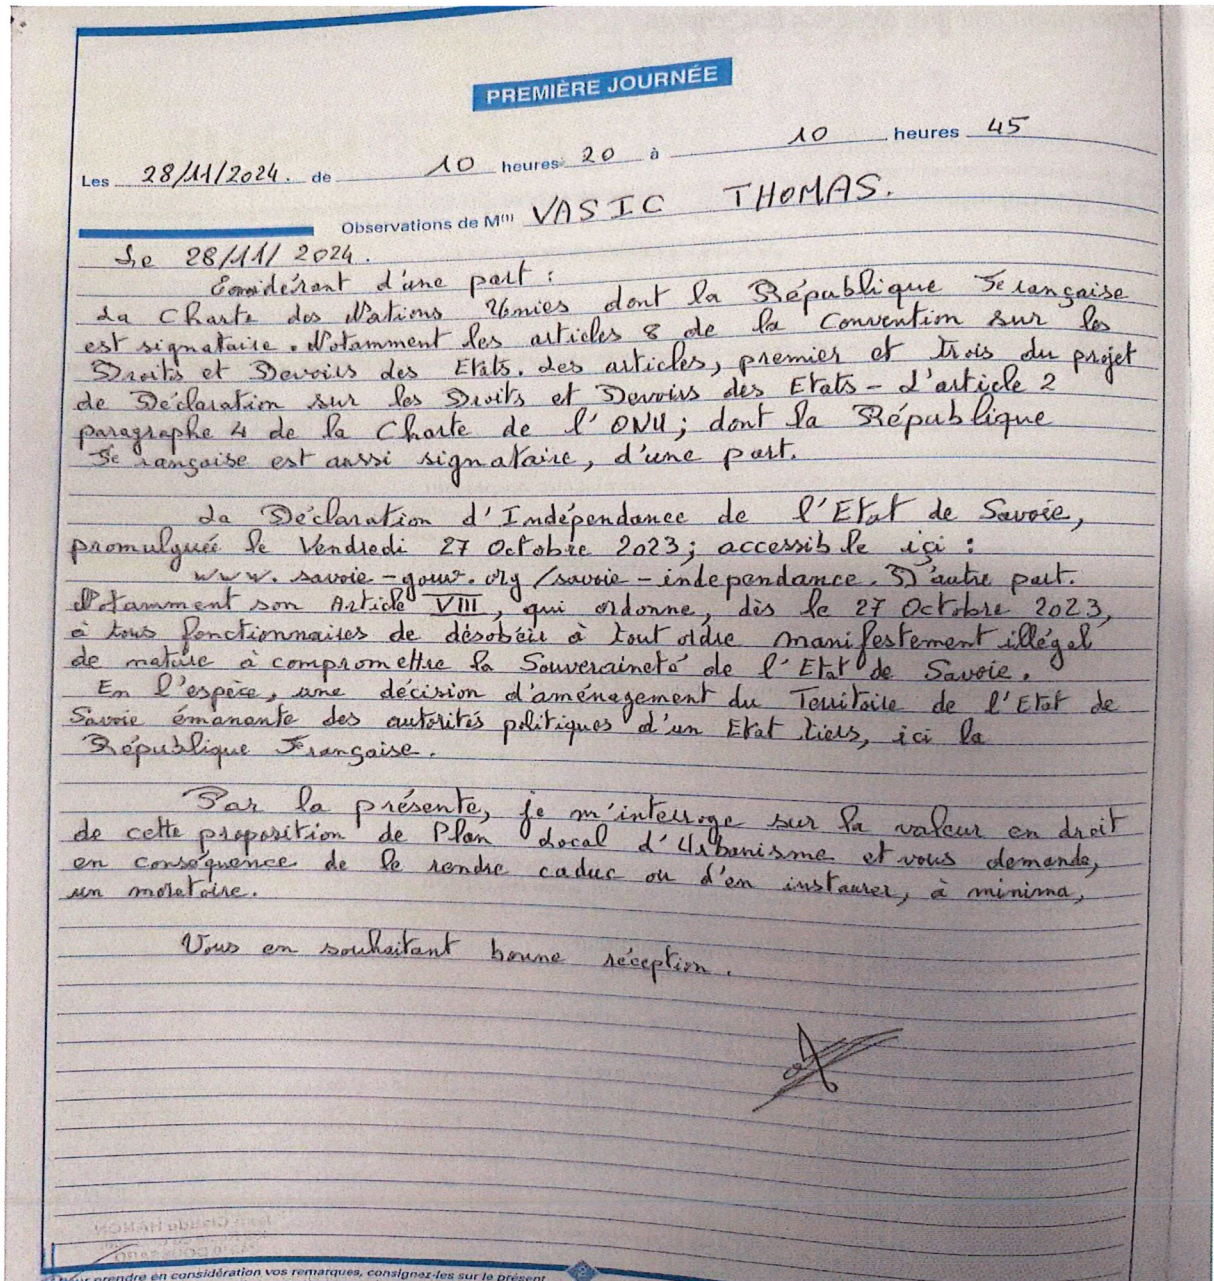 PREMIÈRE JOURNÉE
Les 28/11/2024. de 10 heures 20 à 10 heures 45
Observations de M(1) VASIC THOMAS.
Le 28/11/2024.
Considérant d'une part :
La Charte des Nations Unies dont la République Française
est signataire. Notamment les articles 8 de la Convention sur les
Droits et Devoirs des Etats. Les articles, premier et trois du projet
de Déclaration sur les Droits et Devoirs des Etats - L'article 2
paragraphe 4 de la Charte de l'ONU; dont la République
Française est aussi signataire, d'une part.
La Déclaration d'Indépendance de l'Etat de Savoie,
promulguée le Vendredi 27 Octobre 2023; accessible içi :
www.savoie-gouv.org/savoie-independance. D'autre part.
Notamment son Article VIII, qui ordonne, dès le 27 Octobre 2023,
à tous fonctionnaires de désobéir à tout ordre manifestement illégal
de nature à compromettre la Souveraineté de l'Etat de Savoie.
En l'espèce, une décision d'aménagement du Territoire de l'Etat de
Savoie émanante des autorités politiques d'un Etat tiers, ici la
République Française.
Par la présente, je m'interroge sur la valeur en droit
de cette proposition de Plan Local d'Urbanisme et vous demande,
en conséquence de le rendre caduc ou d'en instaurer, à minima,
un moratoire.
Vous en souhaitant bonne réception.
pour prendre en considération vos remarques, consignez-les sur le présent